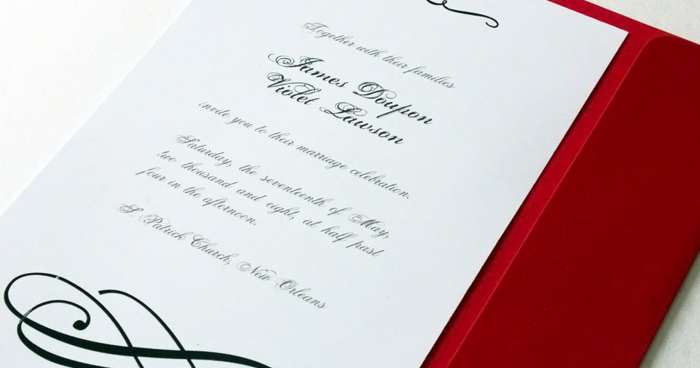 Together with their families
James Doupon
Violet Lawson
invite you to their marriage celebration.
Saturday, the seventeenth of May,
two thousand and eight, at half past
four in the afternoon.
S. Patrick Church, New Orleans